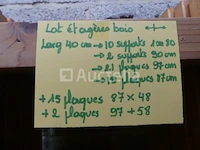 Lot Etagères bois
Larg 40 cm → 10 supports 1m80
→ 2 supports 90 cm
→ 21 plaques 97 cm
→ 15 plaques 87 cm
+ 15 plaques 87 x 48
+ 2 plaques 97 + 58